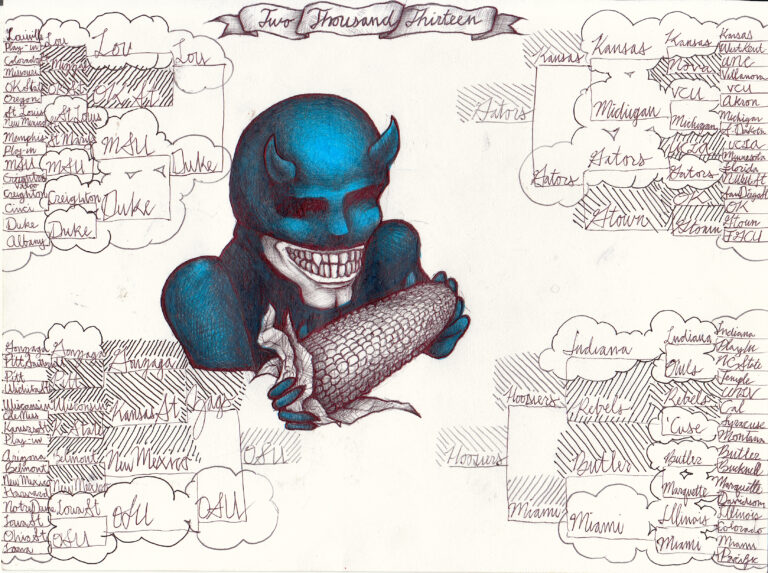 Two Thousand Thirteen
Louisville
Play-in
Colorado
Missouri
OK State
Oregon
St Louis
New Mexico
Memphis
Play-in
MSU
Creighton
Cinci
Duke
Albany
Lou
OK St
St Louis
MSU
Creighton
Duke
Lou
OK St
MSU
Duke
Lou
Duke
Gonzaga
Pitt
Wichita St
Wisconsin
Ole Miss
Kansas St
Play-in
Arizona
Belmont
New Mexico
Harvard
Notre Dame
Iowa St
Ohio St
Iona
Gonzaga
Pitt
Wisconsin
Belmont
New Mexico
Iowa St
OSU
Gonzaga
Kansas St
New Mexico
OSU
Zags
OSU
OSU
Gators
Kansas
Gators
Kansas
Michigan
Gators
Gtown
Kansas
Nova
VCU
Michigan
Gators
Gtown
Kansas
West Kent
UNC
Villanova
VCU
Akron
Michigan
S Dakota
UCLA
Minnesota
Florida
Gtown
FGCU
Hoosiers
Hoosiers
Miami
Indiana
Rebels
Butler
Miami
Indiana
Owls
Rebels
'Cuse
Butler
Marquette
Illinois
Miami
Indiana
Play In
NC State
Temple
UNLV
Cal
Syracuse
Montana
Butler
Bucknell
Marquette
Davidson
Illinois
Colorado
Miami
Pacific